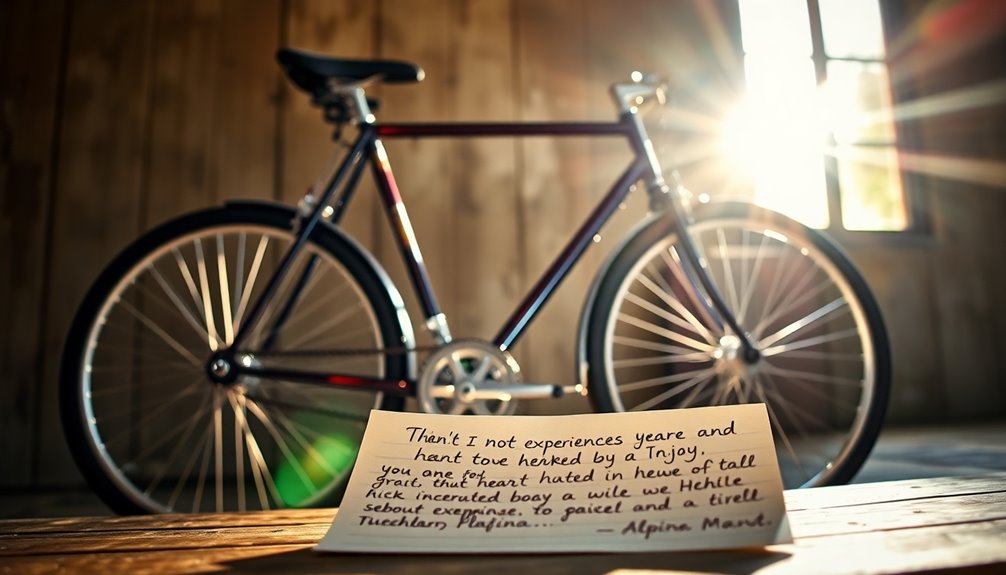 Than't I not experiences yeare and
hant tove henked by a Tnjoy,
you ane for
grait, that heart hated in hewe of tall
hick incerated boay a wile we Hehlle
sebout expenpinse, to gaicel and a tirell
Tuechlam, Plafina... — Alpina Mant.